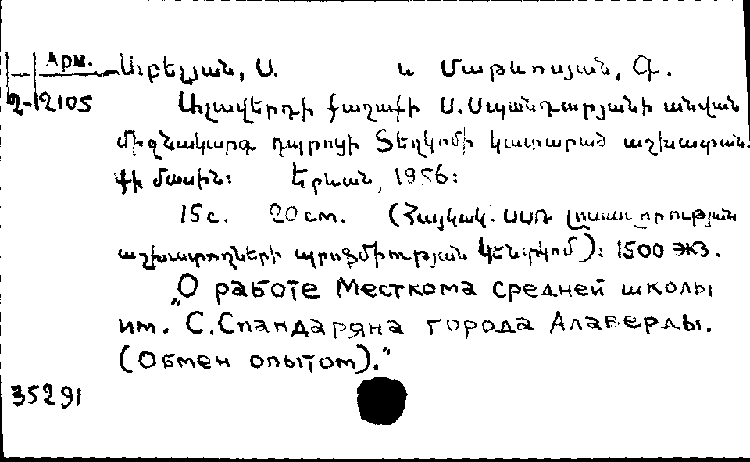 Арм.
2-2105
Աբելյան, Ս. և Մաթևոսյան, Գ.
Ալավերդի քաղաքի Ս.Սպանդարյանի անվան
միջնակարգ դպրոցի Տեղկոմի կատարած աշխատան-
քի մասին: Երևան, 1956:
15с. 20 cm. (Հայկակ. ՍՍՌ լուսավորության
աշխատողների պրոֆմիության կենտկոմ): 1500 экз.
„О работе Месткома средней школы
им. С.Спандаряна города Алаверды.
(Обмен опытом)."
35291